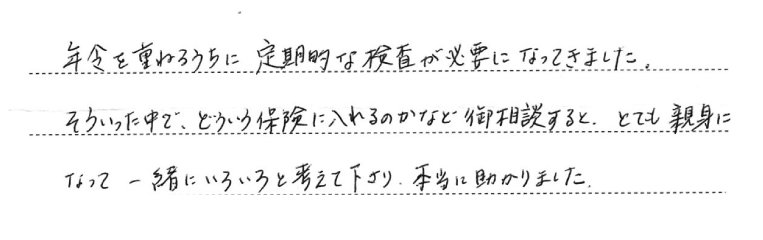 年令を重ねるうちに 定期的な検査が必要になってきました。
そういった中で、どういう保険に入れるのかなど御相談すると、とても親身に
なって 一緒にいろいろと考えて下さり、本当に助かりました。